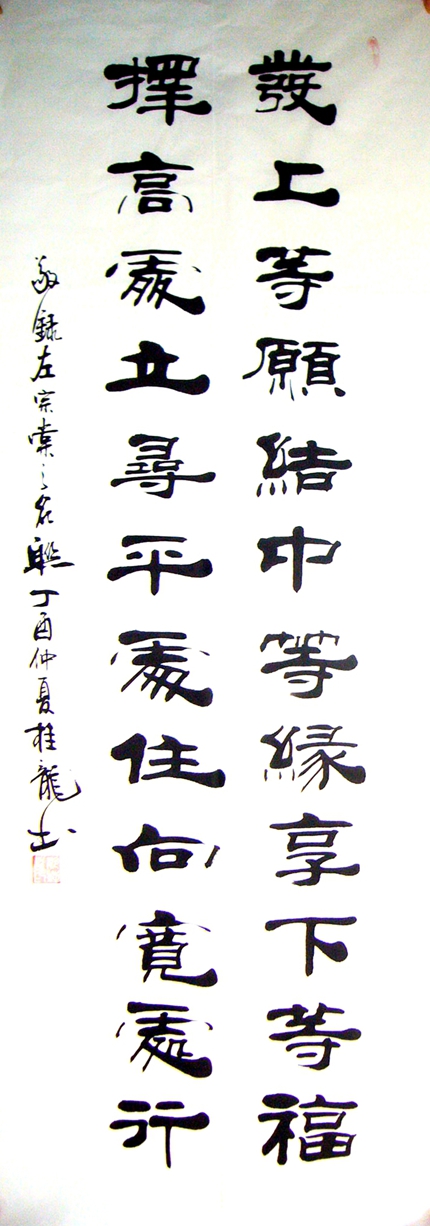 發上等願結中等緣享下等福
擇高處立尋平處住向寬處行
敬錄左宗棠之名聯丁酉仲夏桂龍书